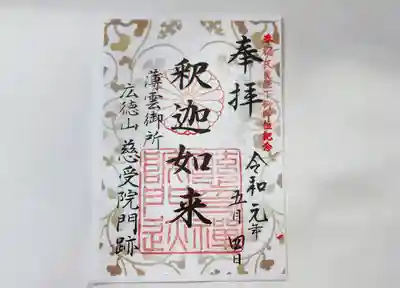 奉拝
令和元年
五月四日
釈迦如来
薄雲御所
広徳山 慈受院門跡